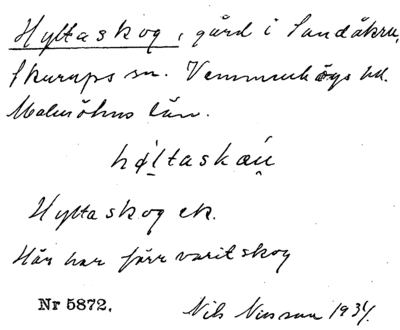 Hyltaskog, gård i Sandåkra,
Skurups sn. Vemmenhögs hd.
Malmöhus län.
hǿ̨ltaskæ̨ú
Hyltaskog ek.
Här har förr varit skog
Nr 5872. Nils Nilsson 1934.